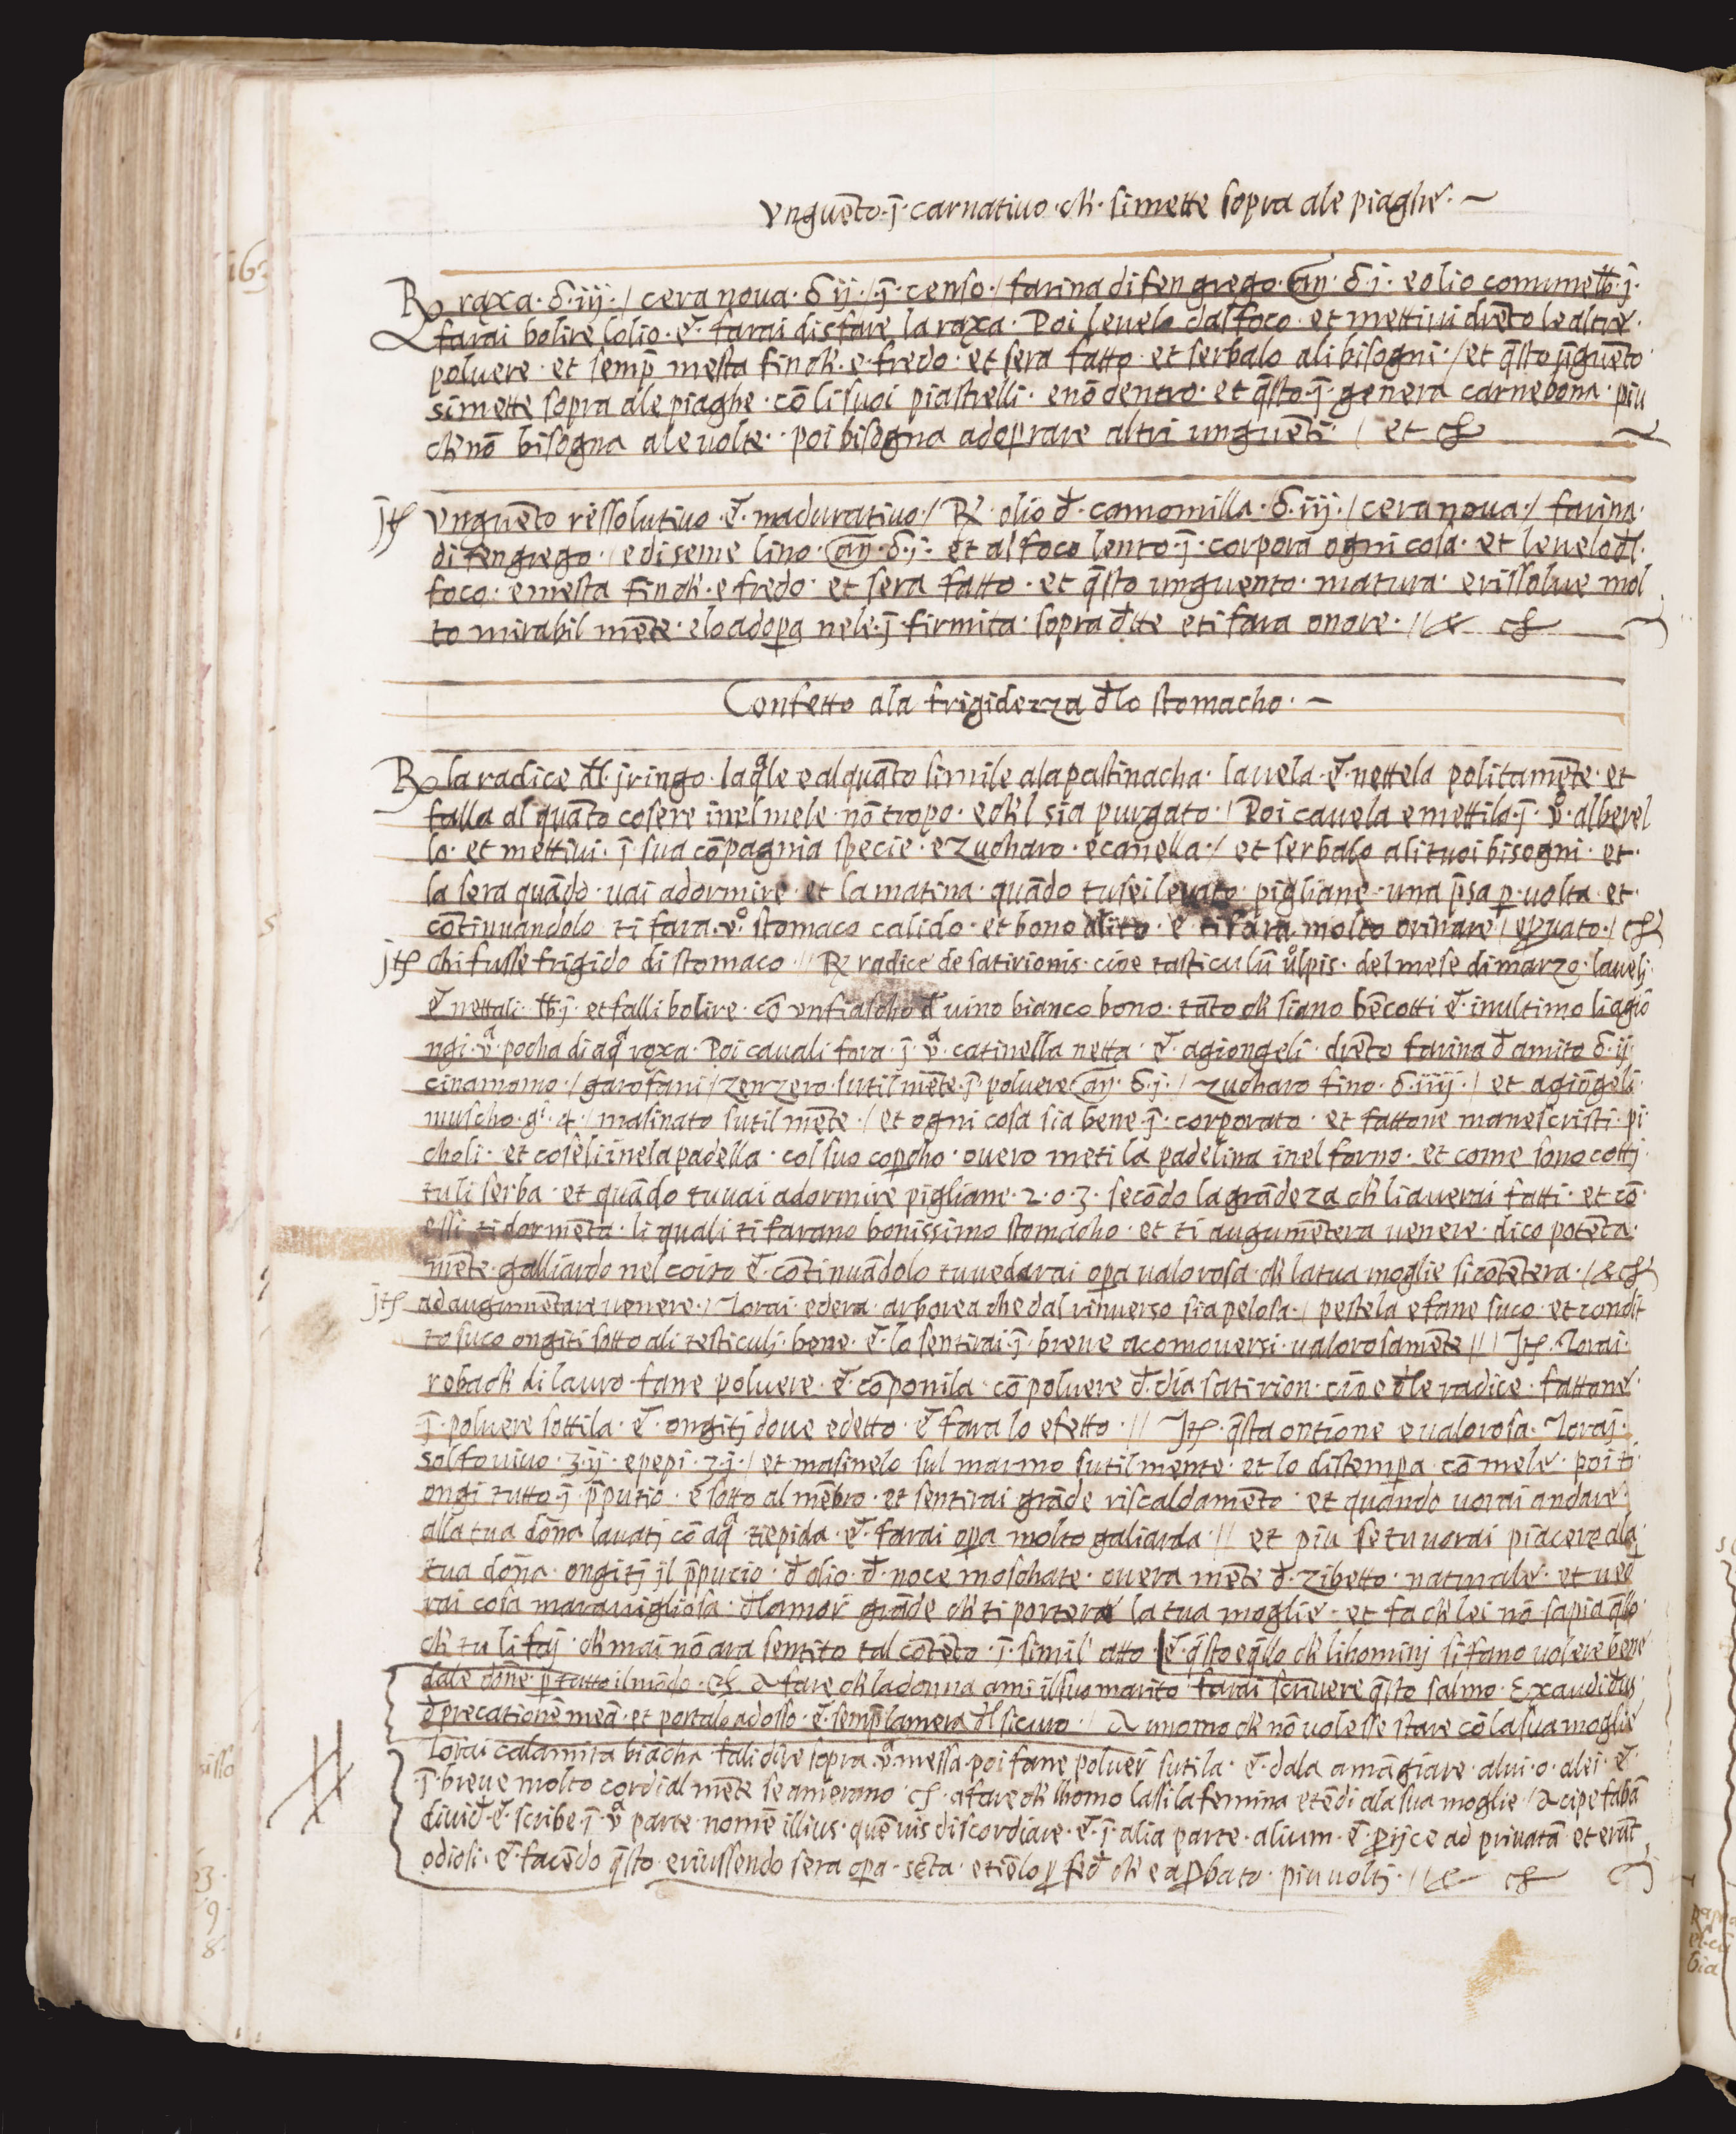 vnguēto·j̄·carnatiuo·ch̄·simette sopra ale piaghe·~
℞ raxa·δ·iij·/ cera noua·δ ij·/ j̄·censo·/ farina di fen grego·añ·δ·j· e olio comune ℔·j·
farai bolire lolio·e͞·farai disfare la raxa· Poi leuelo dal foco·et mettiui drēto le altre·
poluere·et semp̄ mesta fin ch̄·e·fredo·et sera fatto·et serbalo ali bisogni·/et q̄sto j̄guēto·
simette sopra ale piaghe·cō li suoi piastrelli· e nō dentro·et q̄sto·j̄·genera carne bona·piu
ch̄ nō bisogna ale uolte··poi bisogna adoprare altri unguēti·/ et cħ
jtħ vnguēto ressolutiuo·e͞·maduratiuo·/ ℞ olio đ·camomilla·δ·iij·/ cera noua·/ farina·
di fen grego·/ e di seme lino·añ·δ·j· et al foco lento·j̄·corpora ogni cosa·et leuelo đl·
foco·e mesta fin ch̄·e fredo·et sera fatto·et q̄sto unguento·matura·e rissolue mol
to mirabil mēte·elo adopa nele·j̄·firmita·sopra đtte eti fara onore·//& cħ
Confetto ala frigidezza đlo stomacho·~
℞ la radice đl·jringo·laqle e alquāto simile ala pastinacha·lauela·e͞·nettela politamēte·et
falla al quāto cosere inel mele·nō tropo·e ch̄l sia purgato·/ Poi cauela e mettila·j̄·v°·alberel
lo·et mettiui·j̄ sua cōpagnia specie·e zucharo·e canella·/ et serbalo ali tuoi bisogni·et·
la sera quādo·uai adormire·et la matina·quādo tu sei leuato·pigliane·una p̄sa p uolta·et·
cōtinuandolo ti fara·v°·stomaco calido·et bono alito·e ti fara molto orinare / e puato·/cħ
jtħ chi fusse frigido di stomaco·// ℞ radice de satirionis·cioe tasticulū uͦlpis·del mese di marzo·lauelj·
e͞ nettali·℔ j·et falli bolire·cō vn fiascho đ uino bianco bono·tāto ch̄ siano bē cotti e͞·in ultimo li agiō
ngi·vª·pocha di aqª roxa·Poi cauali fora·j̄·vª·catinella netta·e͞·agiongeli·drēto farina đ amito δ·ij·
cinamomo·/garofani/zenzero·sutil mēte·j̄·poluere añ·δ·j·/ zucharo fino·δ·iiij·/ et agiōgeli·
muscho·gͥ·4·/ masinato sutil mēte·/ et ogni cosa sia bene·j̄·corporato·et fattone manescristi·pi·
choli·et coseli inela padella·col suo copcho·ouero meti la padelina inel forno·et come sono cottj·
tu li serba·et quādo tu uai adormire pigliane·2·o·3·secōdo la grādeza ch̄ li auerai fatti·et cō·
essi ti dormēta·li quali ti farano bonissimo stomacho·et ti augumētera uenere·dico potēta·
mēte·galliardo nel coito e͞·cōtinuādolo tu uedarai opa ualorosa·ch̄ la tua moglie si cōtētera·/& cħ
jtħ ad augumētare uenere·/ Torai·edera·arborea che dal rinuerso sia pelosa·/ pestela e fane suco·et condit
to suco ongiti sotto ali testiculj·bene·e͞·lo sentirai·j̄·breue acomouersi·ualorosamēte // Jtħ·Torai·
robach̄ di lauro·fane poluere·e͞·cōponila·cō poluere đ·dia satirion·cioe đle radice·fattone·
j̄·poluere sottila·e͞·ongitj doue e detto·e͞ fara lo efetto·// Jtħ·q̄sta ontione e ualorosa·Toraj·
solfo uiuo·ʒ·ij·e pepi·ʒ·j·/ et masinelo sul marmo sutilmente·et lo distempa cō mele·poi ti
ongi tutto·j̄ p̄putio·e sotto al mēbro·et sentirai grāde riscaldamēto·et quando uorai andare·
alla tua dōna lauatj cō aqª tiepida·e͞·farai opa molto galiarda·// et piu se tu uorai piacere ala
tua dōna·ongitj jl p̄pucio·đ olio·đ·noce moschate·ouera mēte đ·zibetto·naturale·et ued
rai cosa marauigliosa·đlamor grāde ch̄ ti portera la tua moglie·et fa ch̄ lei nō sapia q̄llo·
ch̄ tu li faj·ch̄ mai nō ara sentito tal cōtēto·j̄·simil' atto e͞·q̄sto e q̄llo ch̄ li hominj si fano uolere bene
dale dōne·p tutto il mōdo·cħ A fare ch̄ la donna ami il suo marito farai scriuere q̄sto salmo·Exaudi đus
đprecationē meā·et portalo adosso·e͞·semp̄ lamera đl sicuro·/ A unomo ch̄ nō uolesse stare cō la sua moglie
Torai calamita biācha·fali dire sopra·vª·messa·poi fane poluer' sutila·e͞·dala a māgiare·alui·o·alei·e͞·
·j̄·breue molto cordial mēte se amerano·cħ·afare ch̄ lhomo lassi la femina et ēdi ala sua moglie / Acipe fabā
diuiđ·e͞·scribe·j̄·vª parte·nomē illius·quē uis discordiare·e͞·j̄·alia parte·alium·e͞·pijce ad priuatā et erāt
odiosi·e͞·facēdo q̄sto·e riussendo sera opa·sēta·et iēlo p feđ ch̄ e a pbato·piu uoltj·//& cħ